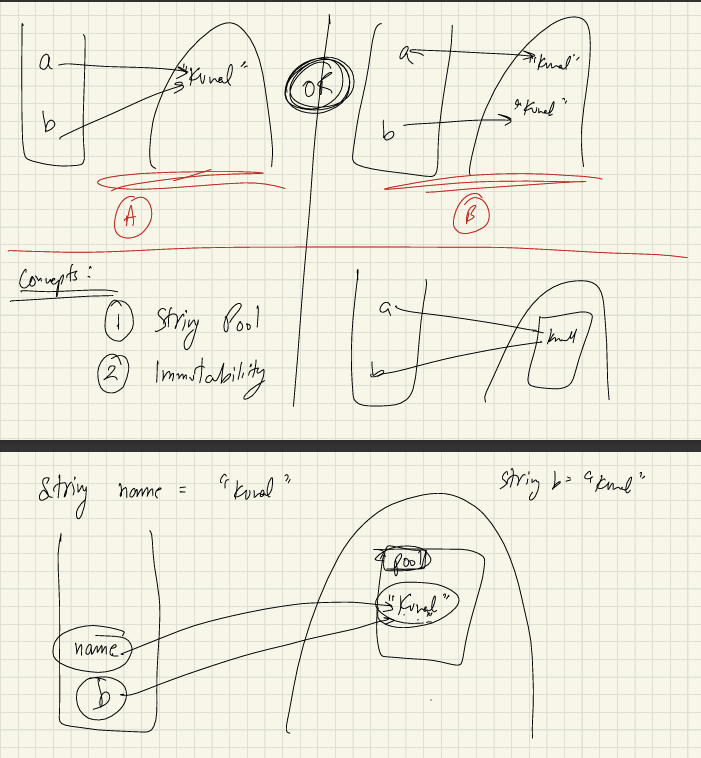 a
"Kunal"
b
OR
a
"Kunal"
b
"Kunal"
A
B
Concepts:
1 String Pool
2 Immutability
a
b
Kunal
String name = "Kunal"
String b = "Kunal"
pool
"Kunal"
name
b